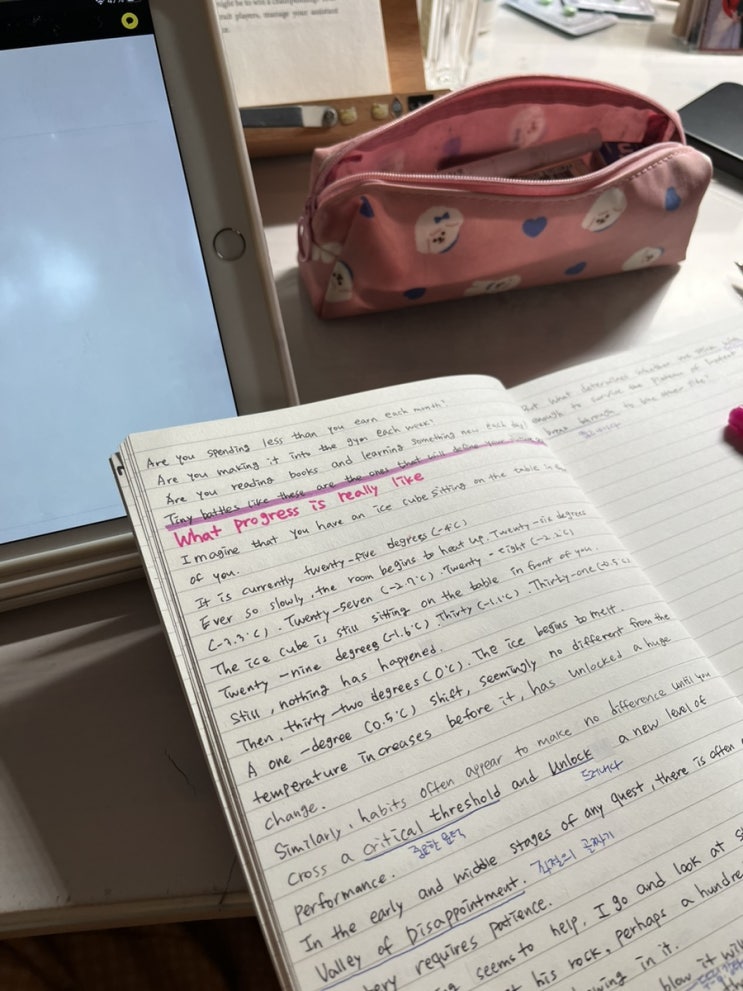 might be to win a championship?
players, manage your assistant
Are you spending less than you earn each month?
Are you making it into the gym each week?
Are you reading books and learning something new each day?
Tiny battles like these are the ones that will define your
What progress is really like
Imagine that you have an ice cube sitting on the table in
of you.
It is currently twenty-five degrees (-4°C)
Ever so slowly, the room begins to heat up. Twenty-six degrees
(-3.3°C). Twenty-seven (-2.7°C). Twenty-eight (-2.2°C)
The ice cube is still sitting on the table in front of you.
Twenty-nine degrees (-1.6°C). Thirty (-1.1°C). Thirty-one (-0.5°C)
Still, nothing has happened.
Then, thirty-two degrees (0°C). The ice begins to melt.
A one-degree (0.5°C) shift, seemingly no different from the
temperature increases before it, has unlocked a huge
change.
Similarly, habits often appear to make no difference until you
cross a critical threshold and unlock a new level of
performance.
In the early and middle stages of any quest, there is often
Valley of Disappointment.
requires patience.
seems to help, I go and look at
his rock, perhaps a hundred
in it.
blow it will
But what determines whether we stick with
enough to survive the Plateau of
break through to the other side?